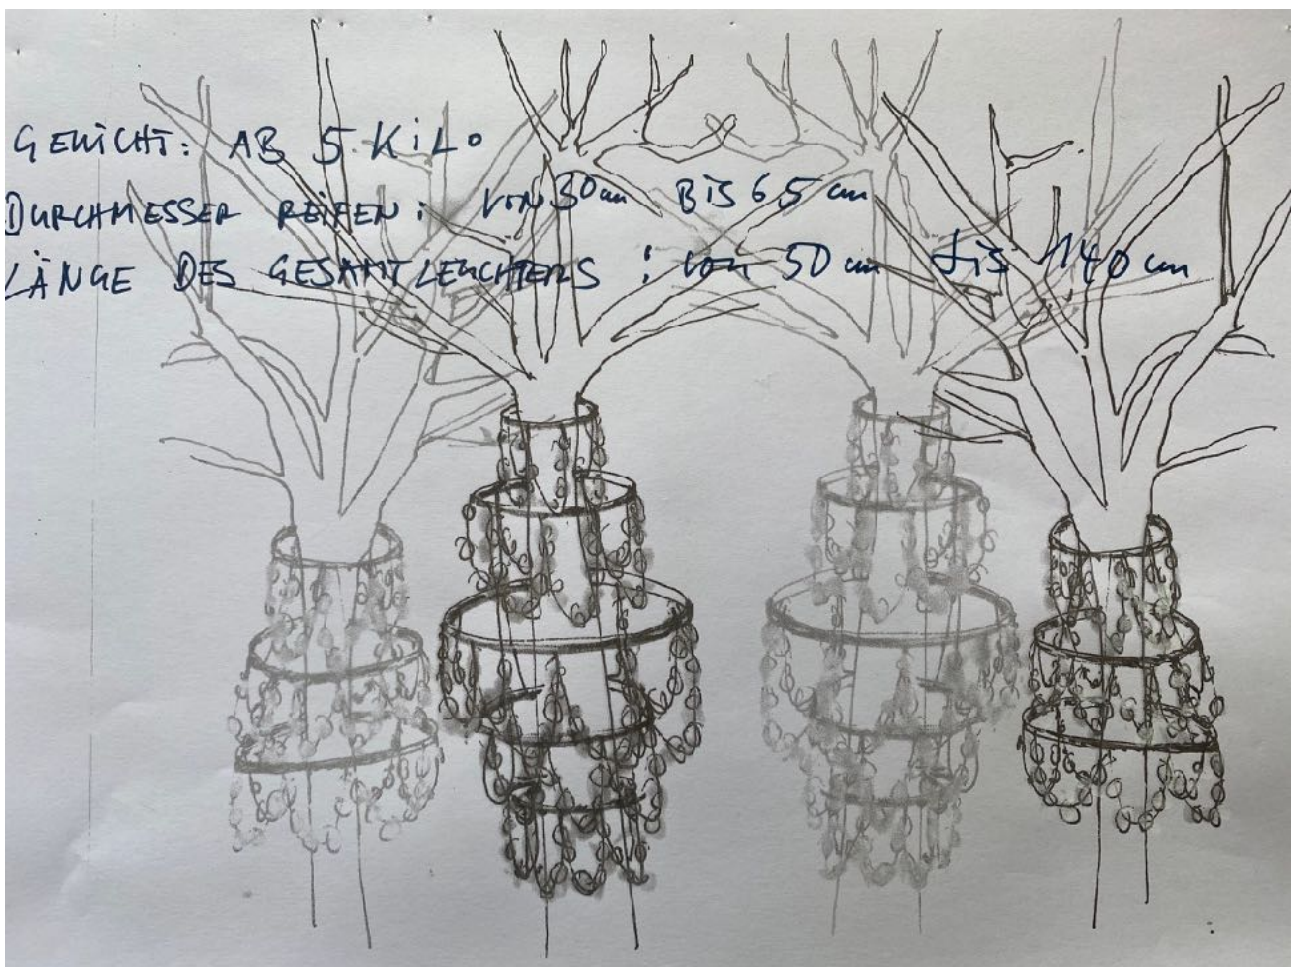 GEWICHT: AB 5 KiLo
DURCHMESSER REIFEN: VON 30 cm BIS 65 cm
LÄNGE DES GESAMTLEUCHTERS: von 50 cm bis 140 cm